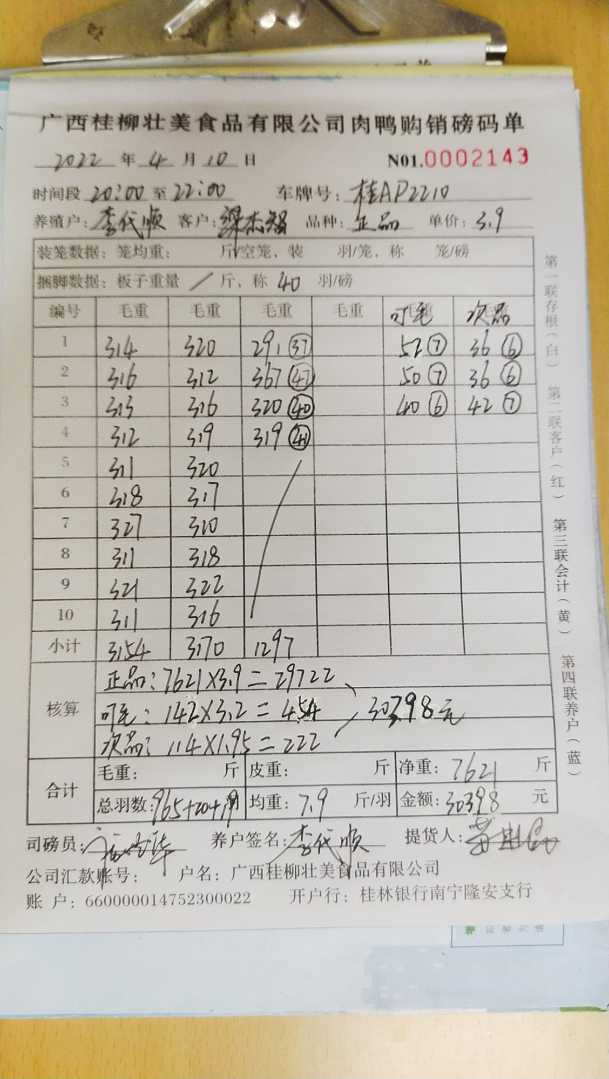 广西桂柳壮美食品有限公司肉鸭购销磅码单
2022 年 4 月 10 日 N01.0002143
时间段 20:00 至 22:00 车牌号: 桂AP2210
养殖户: 李代顺 客户: 梁杰智 品种: 正品 单价: 3.9
装笼数据: 笼均重: 斤/空笼, 装 羽/笼, 称 笼/磅
捆脚数据: 板子重量 / 斤, 称 40 羽/磅
编号 毛重 毛重 毛重 毛重 可毛 次品
1 314 320 291 37 52 7 36 6
2 316 312 367 47 50 7 36 6
3 313 316 320 40 40 6 42 7
4 312 319 319 41
5 311 320
6 318 317
7 327 310
8 311 318
9 321 322
10 311 316
小计 3154 3170 1297
核算
正品: 7621×3.9=29722
可毛: 142×3.2=454 30398元
次品: 114×1.95=222
合计
毛重: 斤 皮重: 斤 净重: 7621 斤
总羽数: 965+20+19 均重: 7.9 斤/羽 金额: 30398 元
司磅员: 养户签名: 李代顺 提货人:
公司汇款账号: 户名: 广西桂柳壮美食品有限公司
账 户: 660000014752300022 开户行: 桂林银行南宁隆安支行
第一联存根(白) 第二联客户(红) 第三联会计(黄) 第四联养户(蓝)